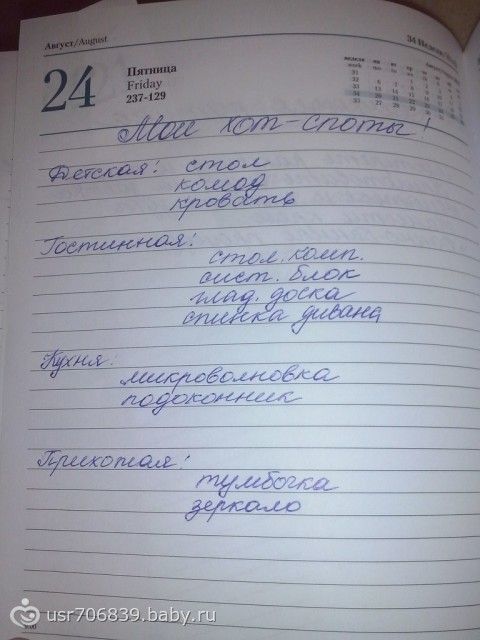 Август/August
34 Неделя
24
Пятница
Friday
237-129
Мои хот-споты!
Детская: стол
комод
кровать
Гостинная:
стол. комп.
сист. блок
глад. доска
спинка дивана
Кухня:
микроволновка
подоконник
Прихожая:
тумбочка
зеркало
usr706839.baby.ru